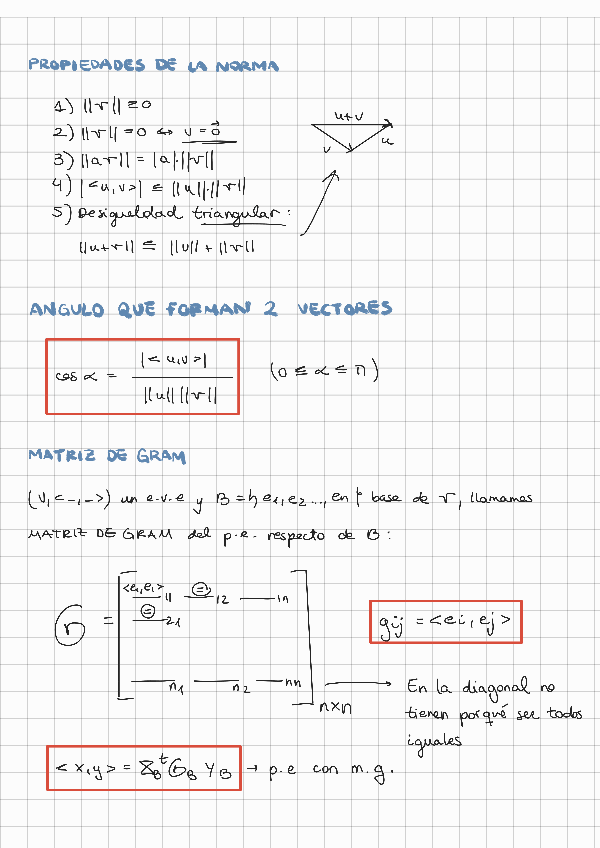 PROPIEDADES DE LA NORMA
1) ||v|| ≥ 0
2) ||v|| = 0 ↔ v = 0⃗
3) ||av|| = |a|·||v||
4) |<u,v>| ≤ ||u||·||v||
5) Desigualdad triangular:
||u+v|| ≤ ||u|| + ||v||
u+v
v
u
ANGULO QUE FORMAN 2 VECTORES
cos α = |<u,v>| / ||u|| ||v|| (0 ≤ α ≤ π)
MATRIZ DE GRAM
(V, <-,->) un e.v.e y B = {e1, e2 ..., en} base de V, llamamos
MATRIZ DE GRAM del p.e. respecto de B:
<e1,e1> 11 = 12 1n
= 21
G =
n1 n2 nn
n×n
gij = <ei, ej>
En la diagonal no
tienen porqué ser todos
iguales
<x,y> = X_B^t G_B Y_B → p.e con m.g.